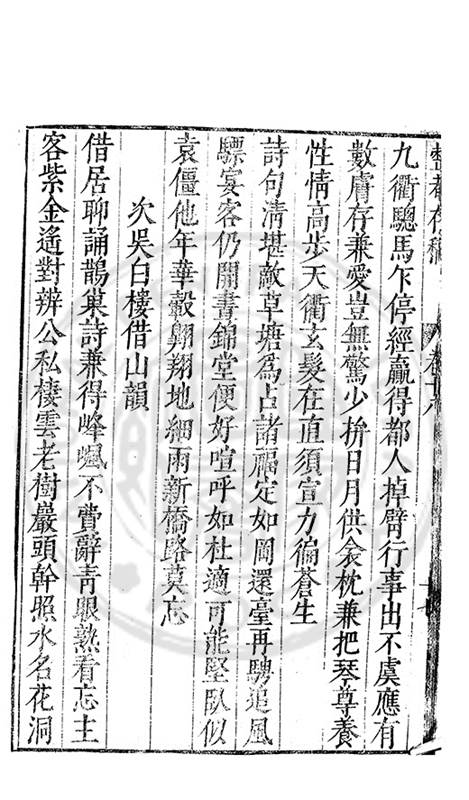 整菴存稿 卷十八
九衢驄馬乍停經贏得都人掉臂行事出不虞應有
數膚存兼愛豈無驚少拚日月供衾枕兼把琴尊養
性情高步天衢玄髮在直須宣力徧蒼生
詩句清堪敵草塘為占諸福定如岡還臺再騁追風
驃宴客仍開晝錦堂便好喧呼如杜適可能堅臥似
袁僵他年華轂翱翔地細雨新橋路莫忘
次吳白樓借山韻
借居聊誦鵲巢詩兼得峰嵐不費辭青眼熟看忘主
客紫金遙對辨公私棲雲老樹巖頭幹照水名花洞